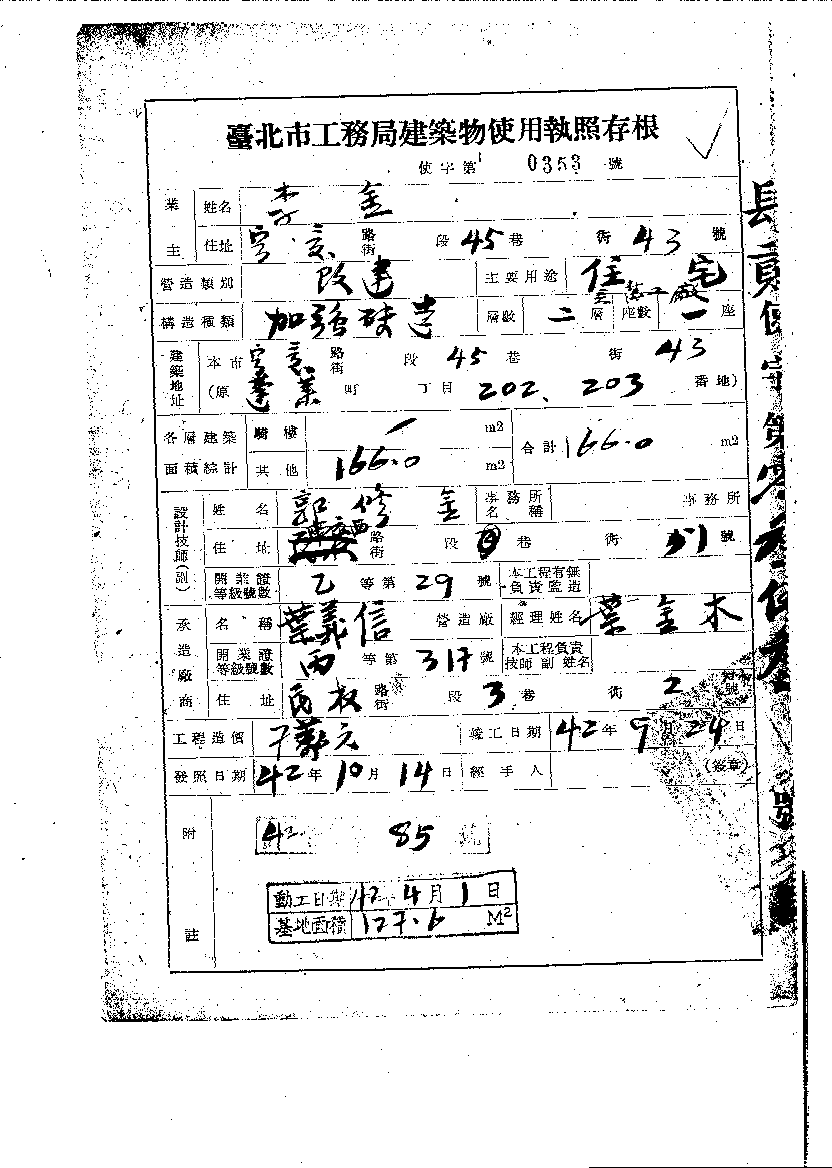 臺北市工務局建築物使用執照存根
使字第 0353 號
業主 姓名 李 金
住址 路街 段 45 巷 街 43 號
營造類別 改建 主要用途 住宅
構造種類 加強磚造 層數 二層 座數 一座
建築地址 本市 路街 段 45 巷 街 43
(原 蓬萊 町 丁目 202、203 番地)
各層建築面積綜計 騎樓 m2 合計 166.0 m2
其他 166.0 m2
設計技師(副) 姓名 郭修金 事務所名稱 事務所
住址 路街 段 巷 街 51 號
開業證等級號數 乙 等第 29 號 本工程有無負責監造
承造廠商 名稱 葉義信 營造廠 經理姓名 葉金木
開業證等級號數 丙 等第 317 號 本工程負責技師副姓名
住址 民權 路街 段 3 巷 街 2 號
工程造價 元 竣工日期 42年9月24日
發照日期 42年10月14日 經手人 (簽章)
附註 42 85 號
動工日期 42年4月1日
基地面積 127.6 M²